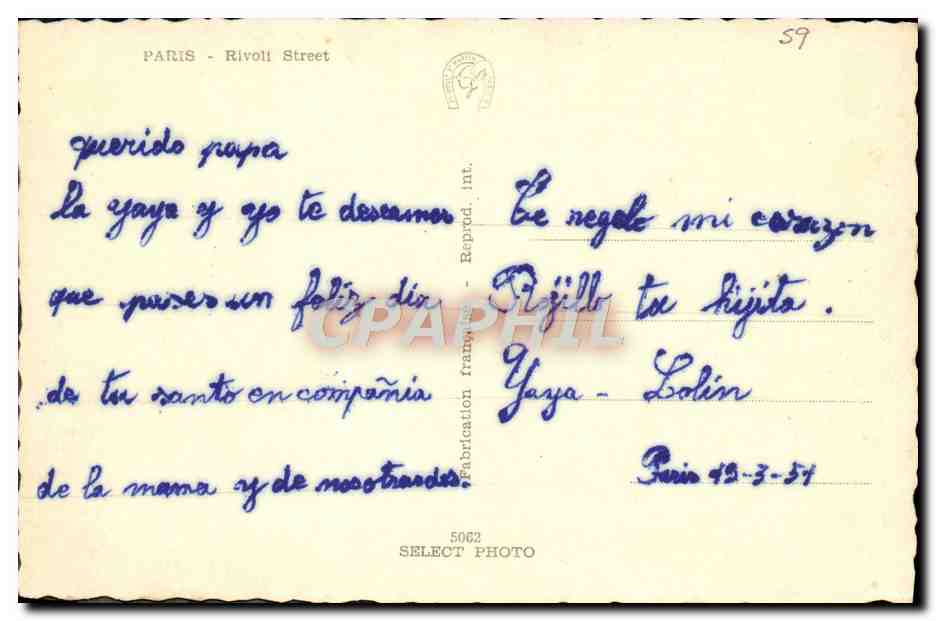 PARIS - Rivoli Street
59
querido papa
la yaya y yo te deseamos
que pases un feliz dia
de tu santo en compañia
de la mama y de nosotras dos.
Te regalo mi corazon
tu hijita.
Yaya - Lolin
Paris 19-3-51
Fabrication française - Reprod. int.
5062
SELECT PHOTO
CPAPHIL